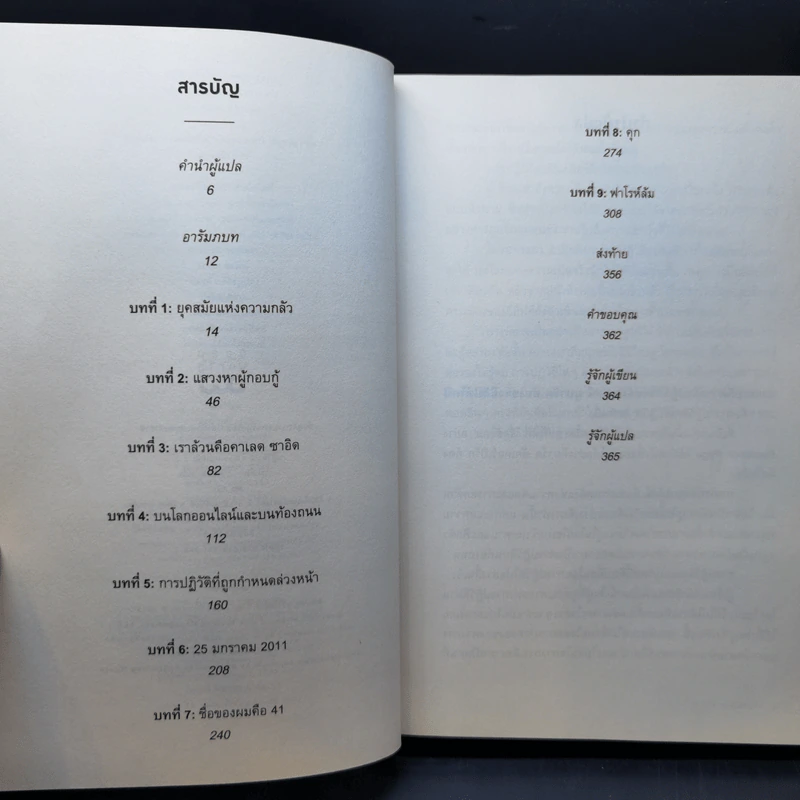 สารบัญ
คำนำผู้แปล
6
อารัมภบท
12
บทที่ 1: ยุคสมัยแห่งความกลัว
14
บทที่ 2: แสวงหาผู้กอบกู้
46
บทที่ 3: เราล้วนคือคาเลด ซาอิด
82
บทที่ 4: บนโลกออนไลน์และบนท้องถนน
112
บทที่ 5: การปฏิวัติที่ถูกกำหนดล่วงหน้า
160
บทที่ 6: 25 มกราคม 2011
208
บทที่ 7: ชื่อของผมคือ 41
240
บทที่ 8: คุก
274
บทที่ 9: ฟาโรห์ล้ม
308
ส่งท้าย
356
คำขอบคุณ
362
รู้จักผู้เขียน
364
รู้จักผู้แปล
365